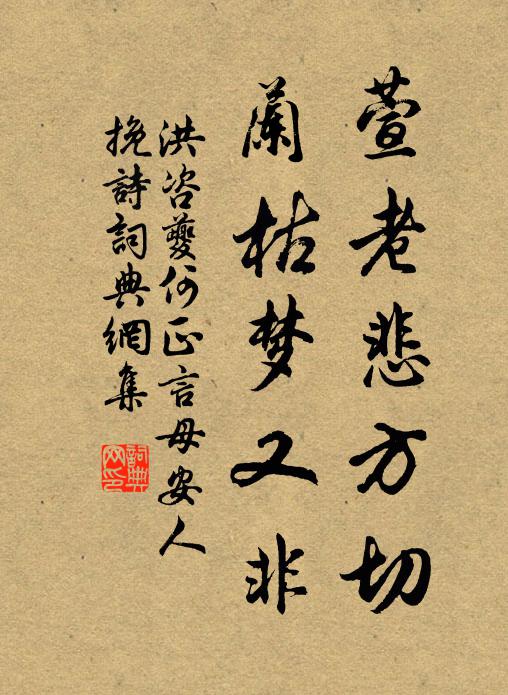 萱老悲方切
蘭枯梦又非
洪咨夔何正言母安人
挽詩詞典網集
詞典网印